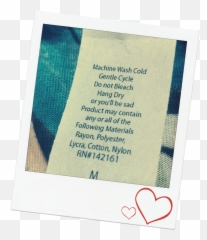 Machine Wash Cold
Gentle Cycle
Do not Bleach
Hang Dry
or you'll be sad
Product may contain
any or all of the
Following Materials
Rayon, Polyester,
Lycra, Cotton, Nylon
RN#142161
M